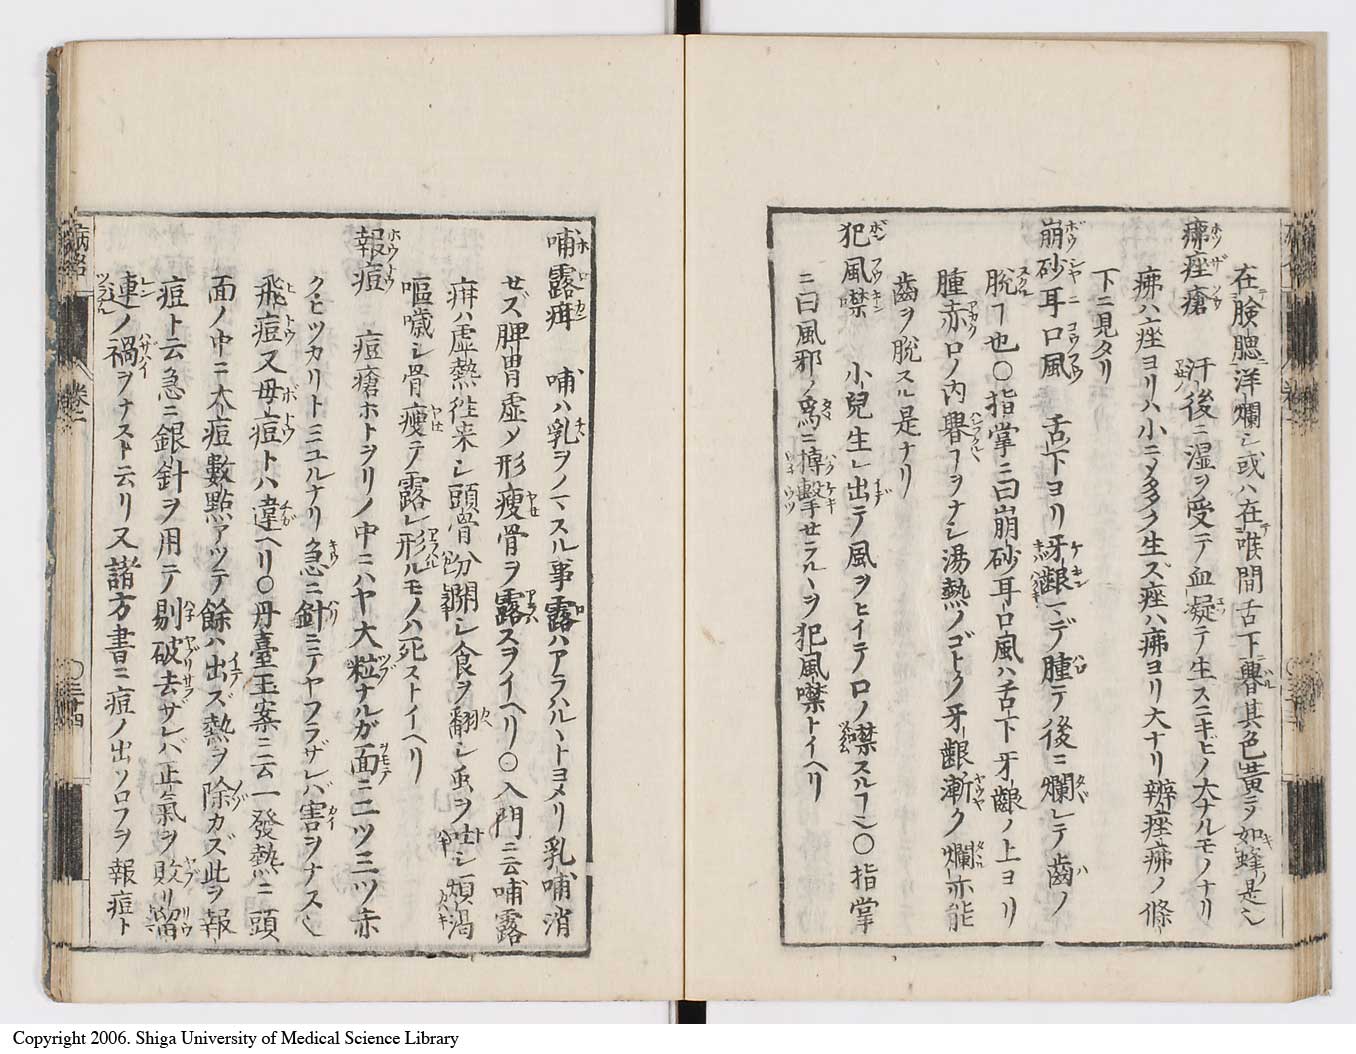 在臉腮洋爛シ或ハ在喉間舌下ニ舋其色黃ニ乄如蜂ノ是ヘシ
疿痤瘡 汗後ニ湿ヲ受テ血凝テ生スニキビノ大ナルモノナリ
疿ハ痤ヨリハ小ニ乄多ク生ズ痤ハ疿ヨリ大ナリ辨痤疿ノ條
下ニ見タリ
崩砂耳口風 舌下ヨリ牙齦マデ腫テ後ニ爛レテ齒ノ
脫ヿ也〇指掌ニ曰崩砂耳口風ハ舌下牙齦ノ上ヨリ
腫赤口ノ内舋ヿヲナシ湯熱ノゴトク牙齦漸ク爛亦能
齒ヲ脫スル是ナリ
犯風噤 小兒生レ出テ風ヲヒイテ口ノ噤スルヿ〇指掌
ニ曰風邪ノ爲ニ搏擊セラルヽヲ犯風噤トイヘリ
哺露疳 哺ハ乳ヲノマスル事露ハアラハルヽトヨメリ乳哺消
せズ脾胃虚乄形瘦骨ヲ露スヲイヘリ〇入門ニ云哺露
疳ハ虚熱徃来シ頭骨分開シ食ヲ翻シ虫ヲ吐シ煩渴
嘔噦シ骨瘦テ露レ形ルモノハ死ストイヘリ
報痘 痘瘡ホトヲリノ中ニハヤ大粒ナルガ面ニ二ツ三ツ赤
クヒツカリトミユルナリ急ニ針ニテヤフラザレバ害ヲナスヘシ
飛痘又母痘トハ違ヘリ〇丹臺玉案ニ云一發熱ニ頭
面ノ中ニ大痘數點アツテ餘ハ出ズ熱ヲ除カズ此ヲ報
痘ト云急ニ銀針ヲ用ニテ剔破去ザレバ正氣ヲ敗リ留
連ノ禍ヲナスト云リ又諸方書ニ痘ノ出ソロフヲ報痘ト
病名
卷二
〇三十四
Copyright 2006. Shiga University of Medical Science Library